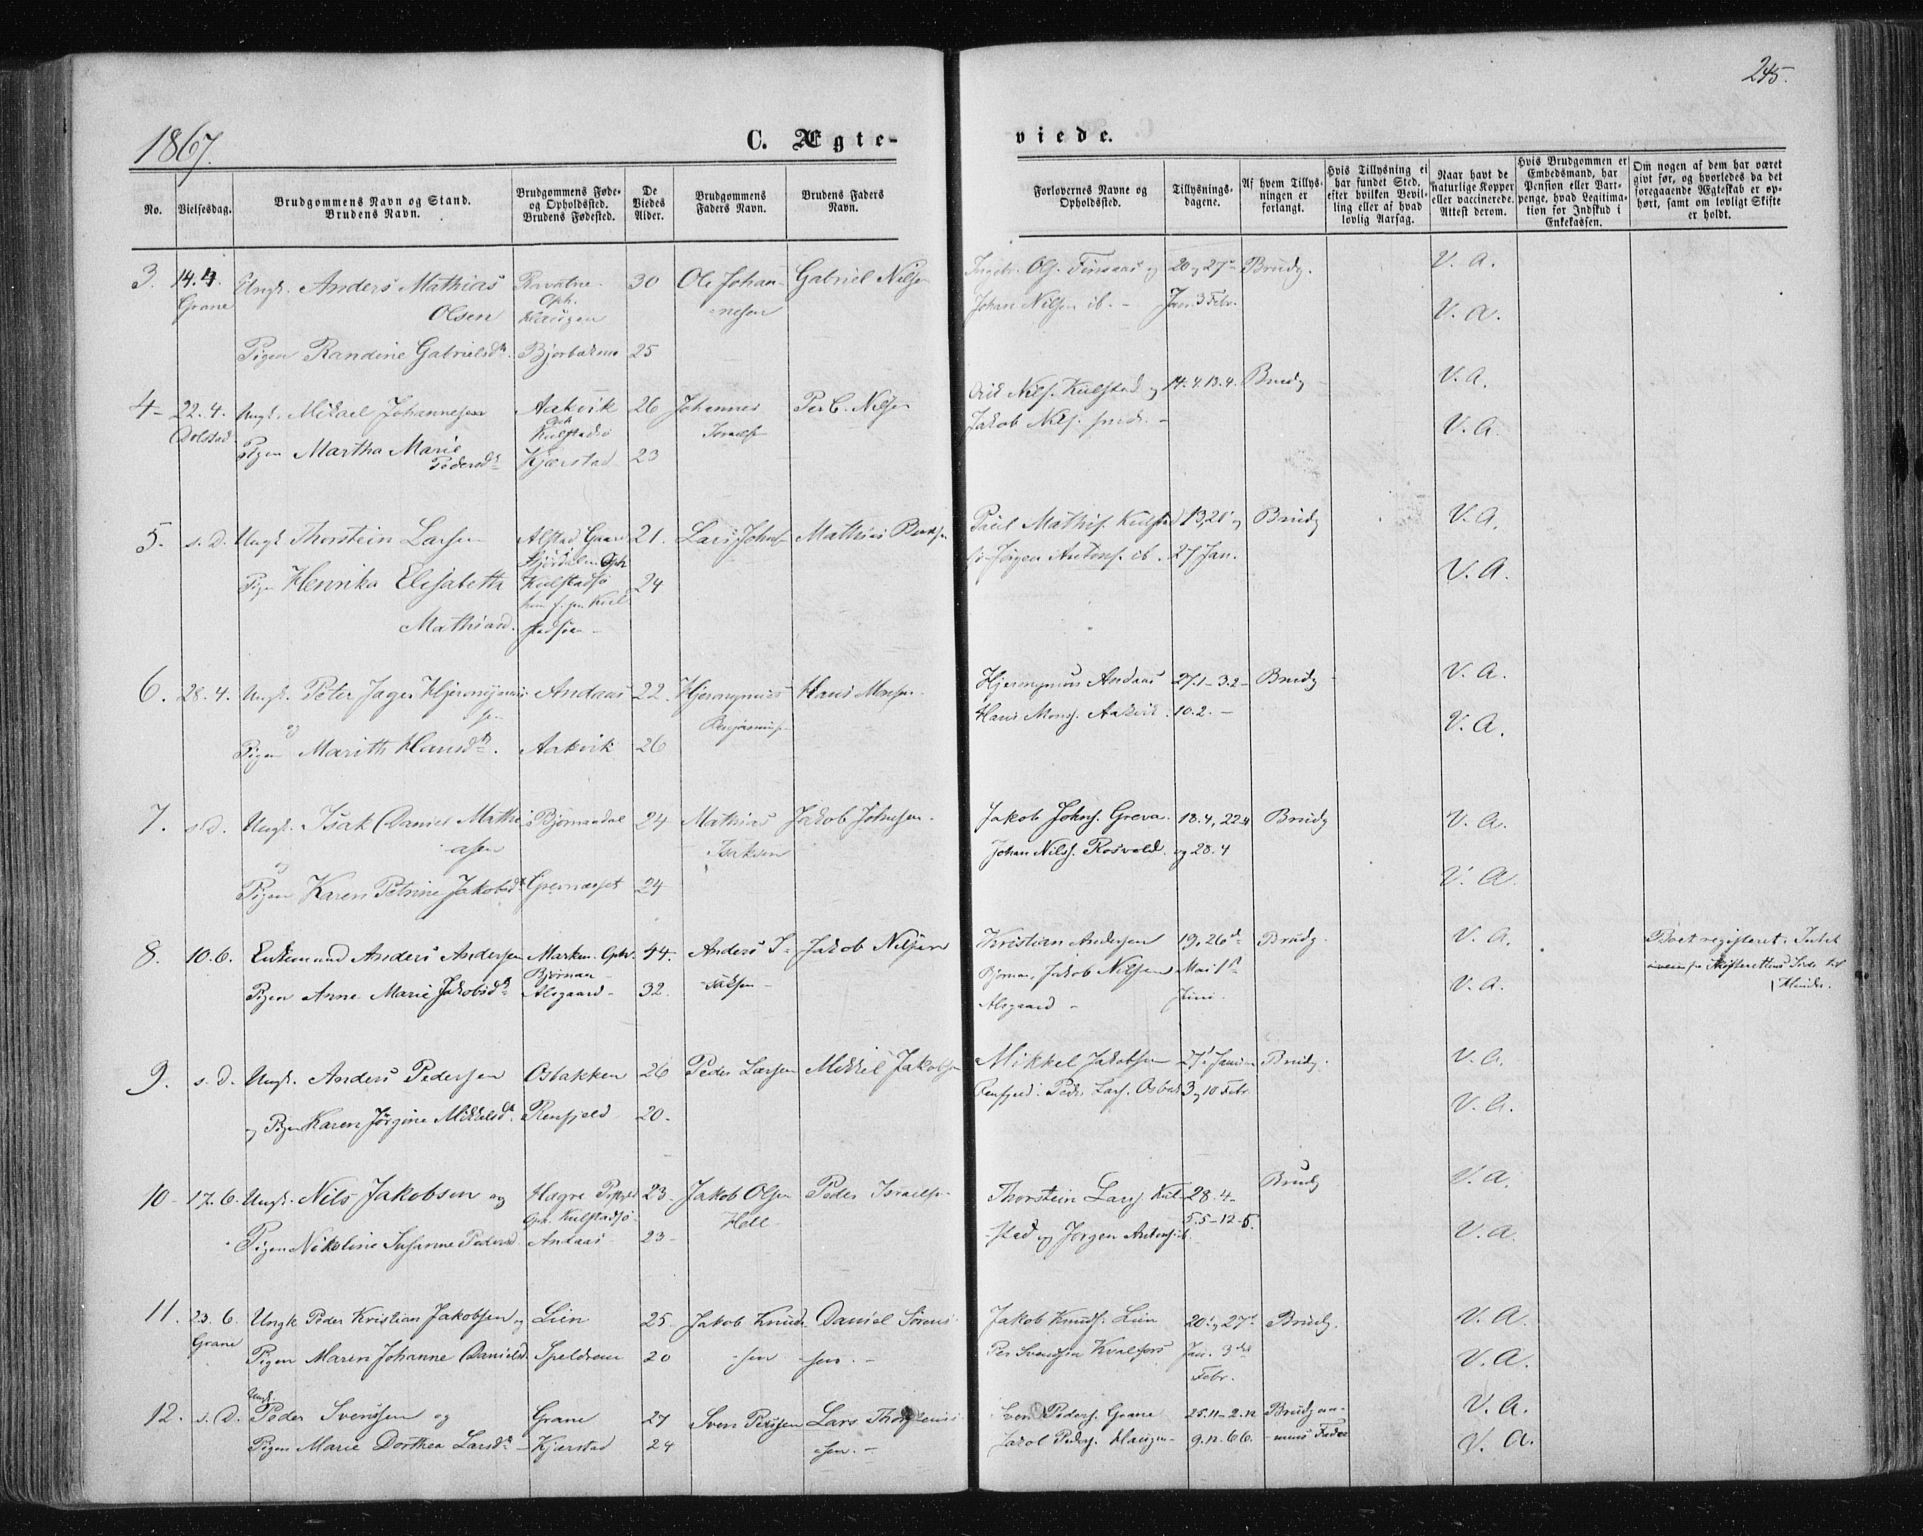 245.
1867.
C. Ægte-
viede.
No.
Vielsesdag.
Brudgommens Navn og Stand.
Brudens Navn.
Brudgommens Føde-
og Opholdssted.
Brudens Fødested.
De
Viedes
Alder.
Brudgommens
Faders Navn.
Brudens Faders
Navn.
Forlovernes Navne og
Opholdssted.
Tillysnings-
dagene.
Af hvem Tillys-
ningen er
forlangt.
Hvis Tillysning ei
har fundet Sted,
efter hvilken Bevil-
ling eller af hvad
lovlig Aarsag.
Naar havt de
naturlige Kopper
eller vaccinerede.
Attest derom.
Hvis Brudgommen er
Embedsmand, har
Pension eller Vart-
penge, hvad Legitima-
tion for Indskud i
Enkekassen.
Om nogen af dem har været
givt før, og hvorledes da det
foregaaende Ægteskab er op-
hørt, samt om lovligt Skifte
er holdt.
3. 14.4 Ungk. Anders Mathias 30 Ole Johan- Gabriel Nilsen 20 og 27 Brudg. V. A.
Grane Olsen Oph. -nesen Johan Nilsen ib. - Jan. 3 Febr. V. A.
Haugen
Pigen Randine Gabrielsd. 25
4- 22.4. Ungk. Mikael Johannesen Aakvik 26 Johannes Per C. Nilsen Nils. Kulstad og 14.4. Brudg V. A.
Dolstad Oph Kulstadsø Israels. Jakob Nils. V. A.
Pigen Martha Marie Pedersd. Kjærstad 23
5. s. D. Ungk Thorstein Larsen Alstad 21. Lars Johns. Mathias Paul Mathis. Kulstad 13, 20 og Brudg V. A.
Pigen Henrika Elisabeth Kulstadsø 24 Jørgen Antons. ib. 27 Jan. V. A.
Mathiasd.
6. 28.4. Ungk. Peter Jager Hjeronymus- Andaas 22. Hjeronymus Hans Monsen Hjeronymus Andaas 27.1-3.2- Brudg V. A.
sen Benjamins. Hans Mons. Aakvik. 10.2. - V. A.
og
Pigen Marith Hansdtr. Aakvik 26
7. s. D. Ungk. Isak Daniel Mathi- Bjørnaadal 24 Mathias Jakob Johnsen. Jakob Johns. Greva. 18.4, 22.4 Brudg V. A.
asen Isaksen Johan Nils. Rosvold. og 28.4
og
Pigen Karen Petrine Jakobsd. 24 V. A.
8. 10.6. Enkemand Anders Andersen Marken. Oph. 44. Anders I- Jakob Nilsen Kristian Andersen 19, 26 Brudg. V. A. Boet registeret.
Bjørnaa- -saksen - Bjørnaa, Jakob Nilsen Mai 1ste
Pigen Anne Marie Jakobsd. Alsgaard - 32. Alsgaard - Juni. V. A.
9. s. D. Ungk. Anders Pedersen Osbakken 26 Peder Larsen Mikkel Jakobsen Mikkel Jakobsen 27 Januar Brudg. V. A.
og Pigen Karen Jørgine Mikkelsd. Renfjeld 20. Peder Lars. Osbak 3 og 10 Febr. V. A.
10- 17.6. Ungk. Nils Jakobsen og Hægre 23- Jakob Olsen Peder Israels. Thorstein Lars. Kul- 28.4- Brudg V. A.
Oph. Kulstadsø. Hell 5.5-12-5.
Pigen Nikoline Susanne Pedersd Andaas 23- -stad og Jørgen Antons. ib. V. A.
11. 23.6. Ungk Peder Kristian Jakobsen og Lien 25- Jakob Knud- Daniel Sørens- Jakob Knuds. Lien 20 og 27 Brudg. V. A.
Grane Pigen Maren Johanne Danielsd. Speldrem 20 -sen -sen. - Per Svendsen Kvalfors Jan. 3 V. A.
Febr.
Ungk.
12. s. D. Peder Svensen og Grane 27 Sven Persen Lars Sven Peders. Grane 25.11-2.12 Brudgom- V. A.
Pigen Marie Dorthea Larsd. - Kjerstad 24 -sen. - Jakob Peders. Haugen- 9.12.66. -mens Fader V. A.